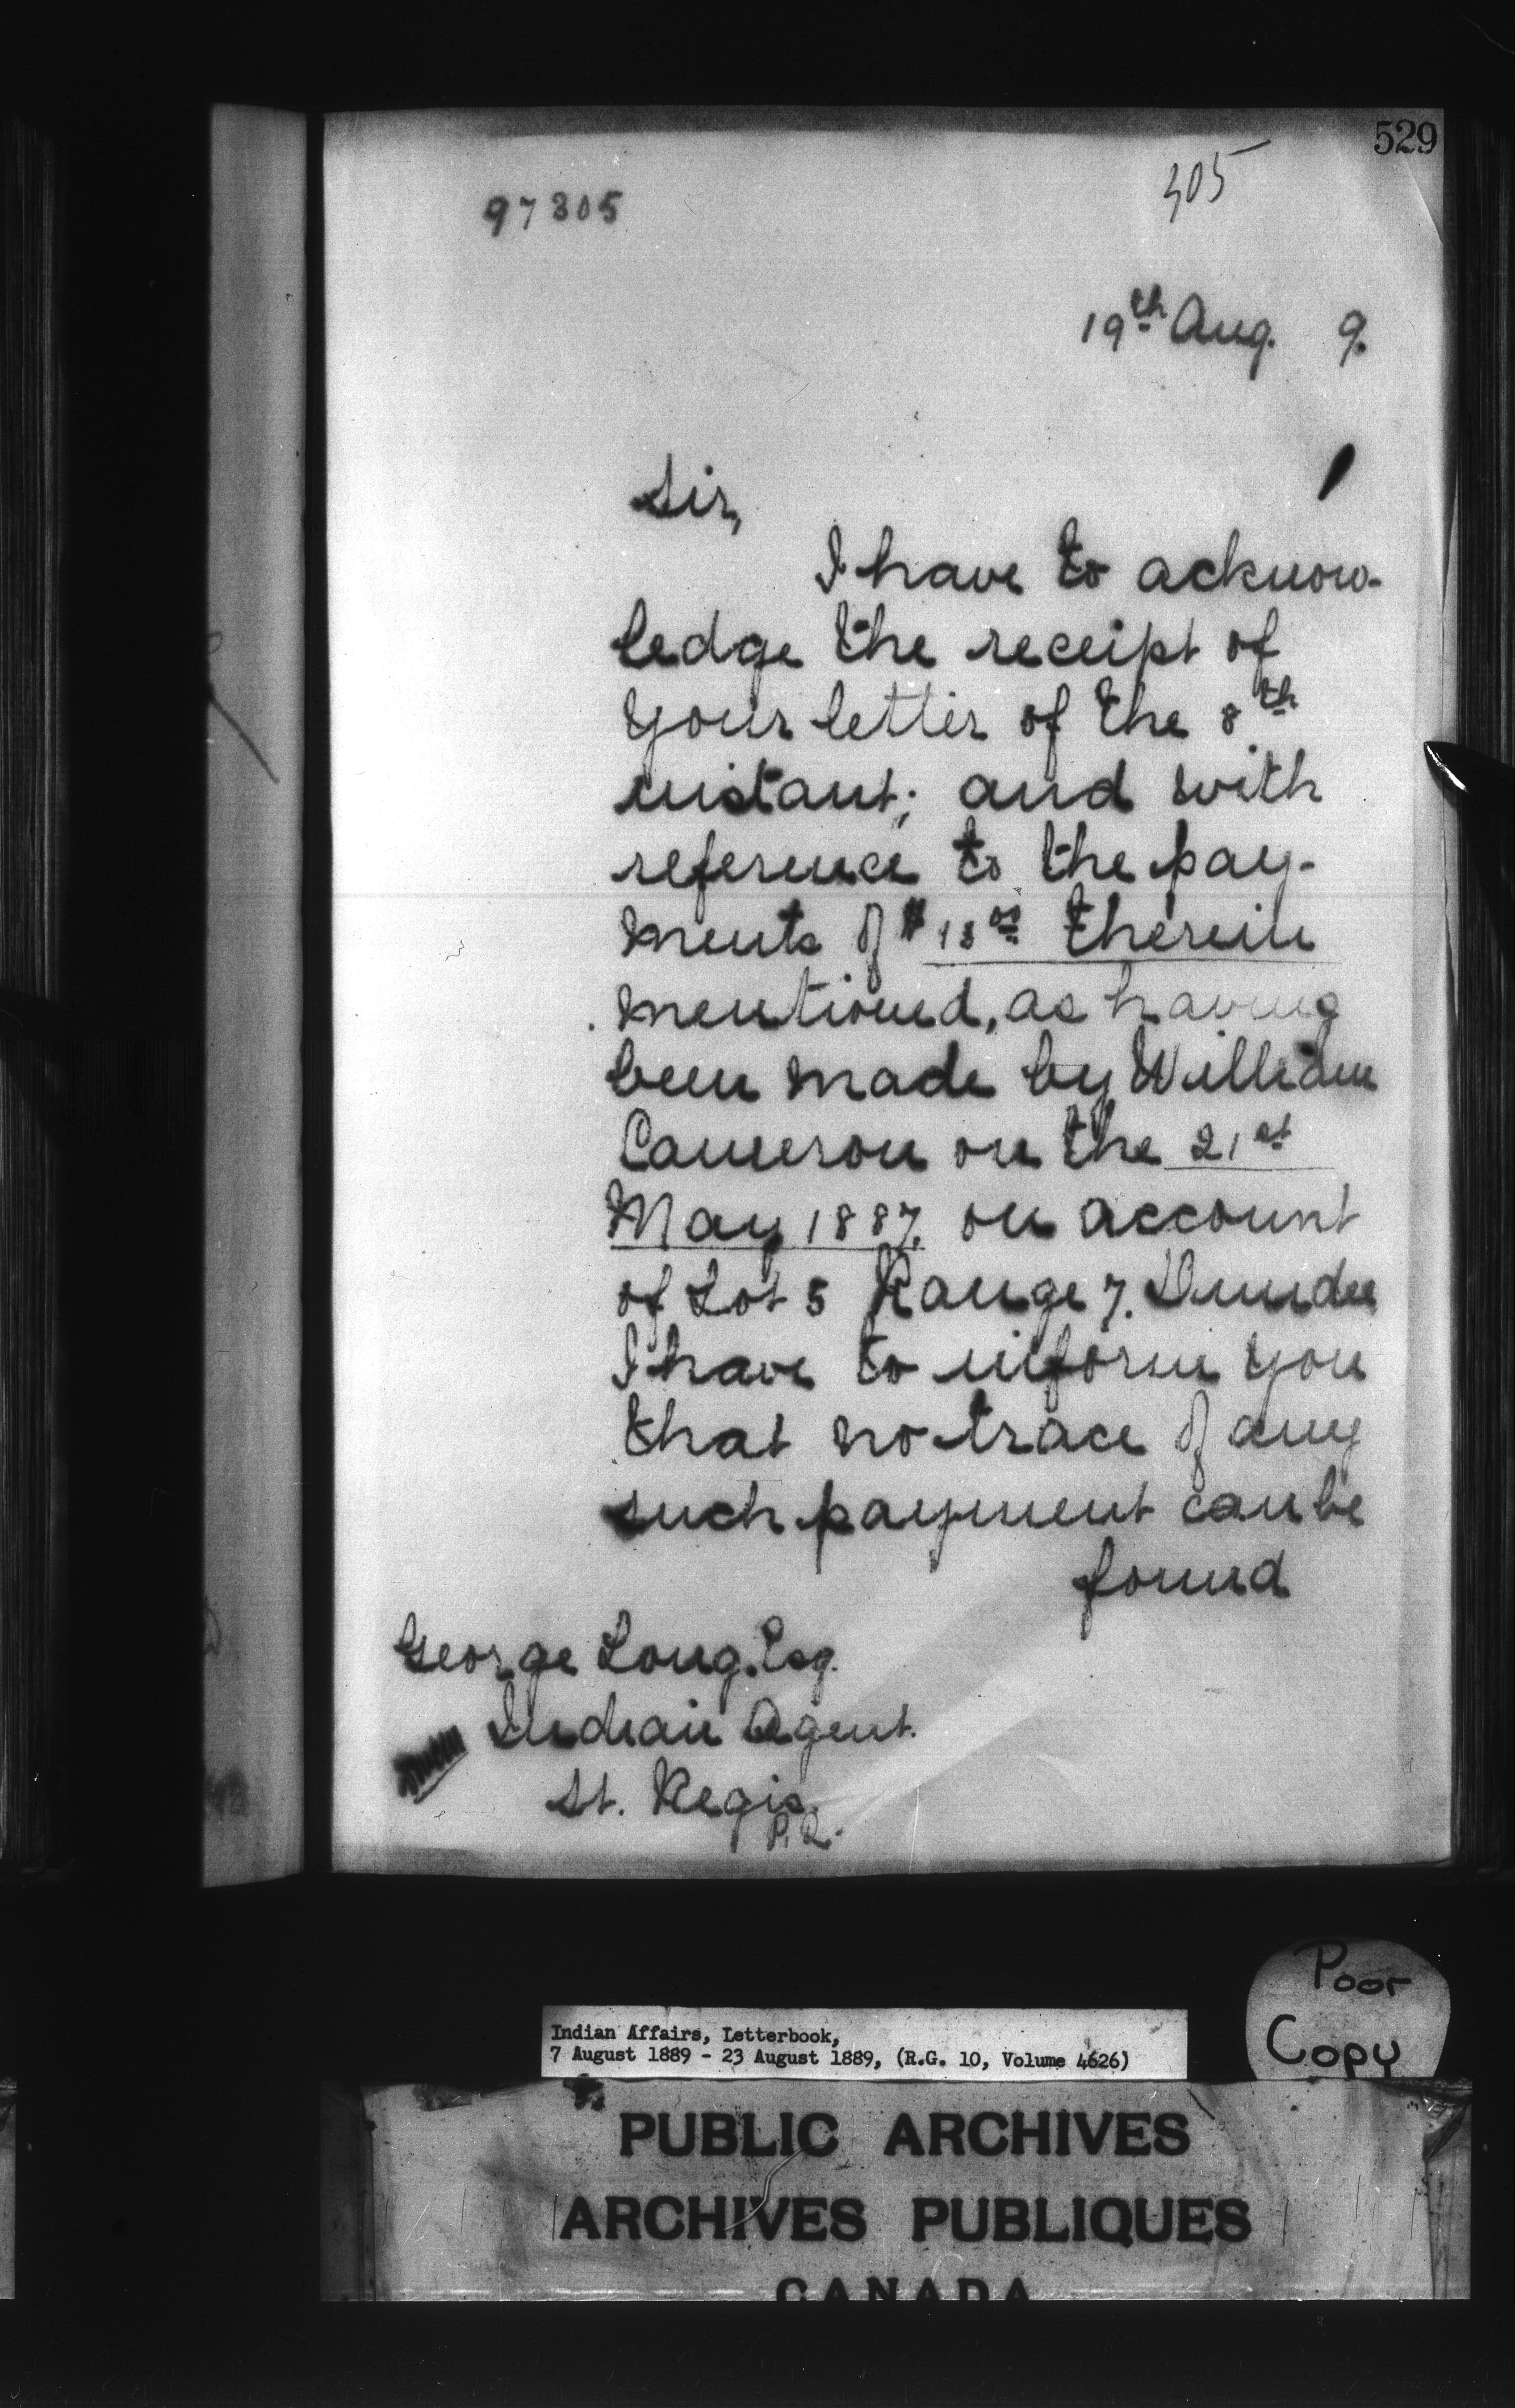 529
305
97305
19th Aug. 9.
Sir,
I have to acknow-
ledge the receipt of
your letter of the 8th
instant; and with
reference to the pay-
ments of $18.00 therein
mentioned, as having
been made by William
Cameron on the 21st
May 1887, on account
of Lot 5 Range 7. Dundee
I have to inform you
that no trace of any
such payment can be
found
George Long. Esq.
Indian Agent.
St. Regis.
P.Q.
Poor
Copy
Indian Affairs, Letterbook,
7 August 1889 - 23 August 1889, (R.G. 10, Volume 4626)
PUBLIC ARCHIVES
ARCHIVES PUBLIQUES
CANADA